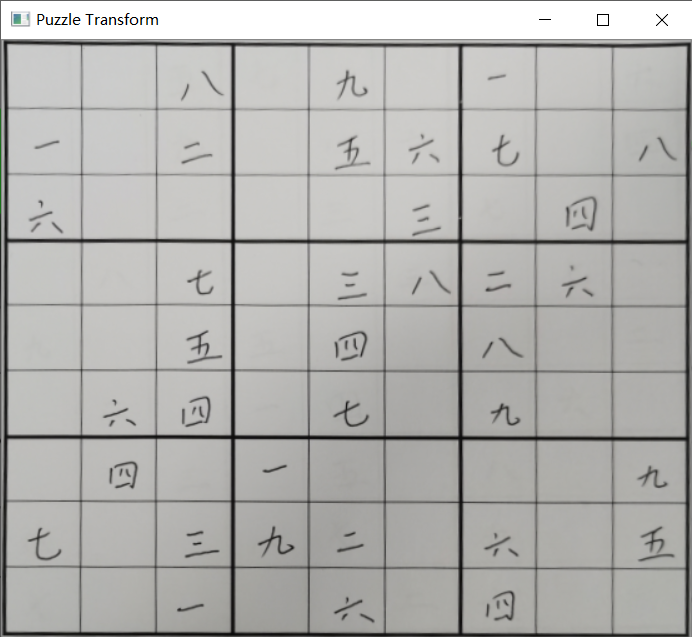 Puzzle Transform
八 九 一
一 二 五 六 七 八
六 三 四
七 三 八 二 六
五 四 八
六 四 七 九
四 一 九
七 三 九 二 六 五
一 六 四